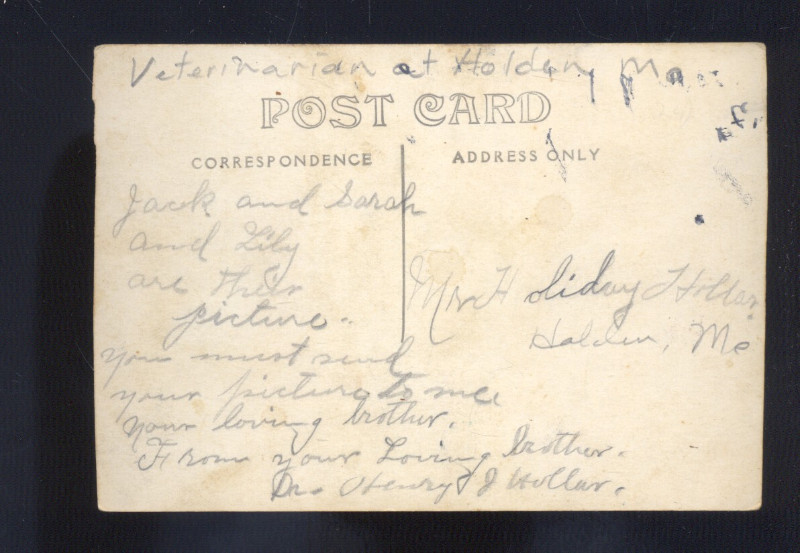 Veterinarian at Holden, Mo.
POST CARD
CORRESPONDENCE
ADDRESS ONLY
Jack and Sarah
and Lily
are their
picture.
you must send
your picture to me
your loving brother.
From your Loving brother.
Dr. Henry J Hollar.
Mr Holiday Hollar.
Holden, Mo